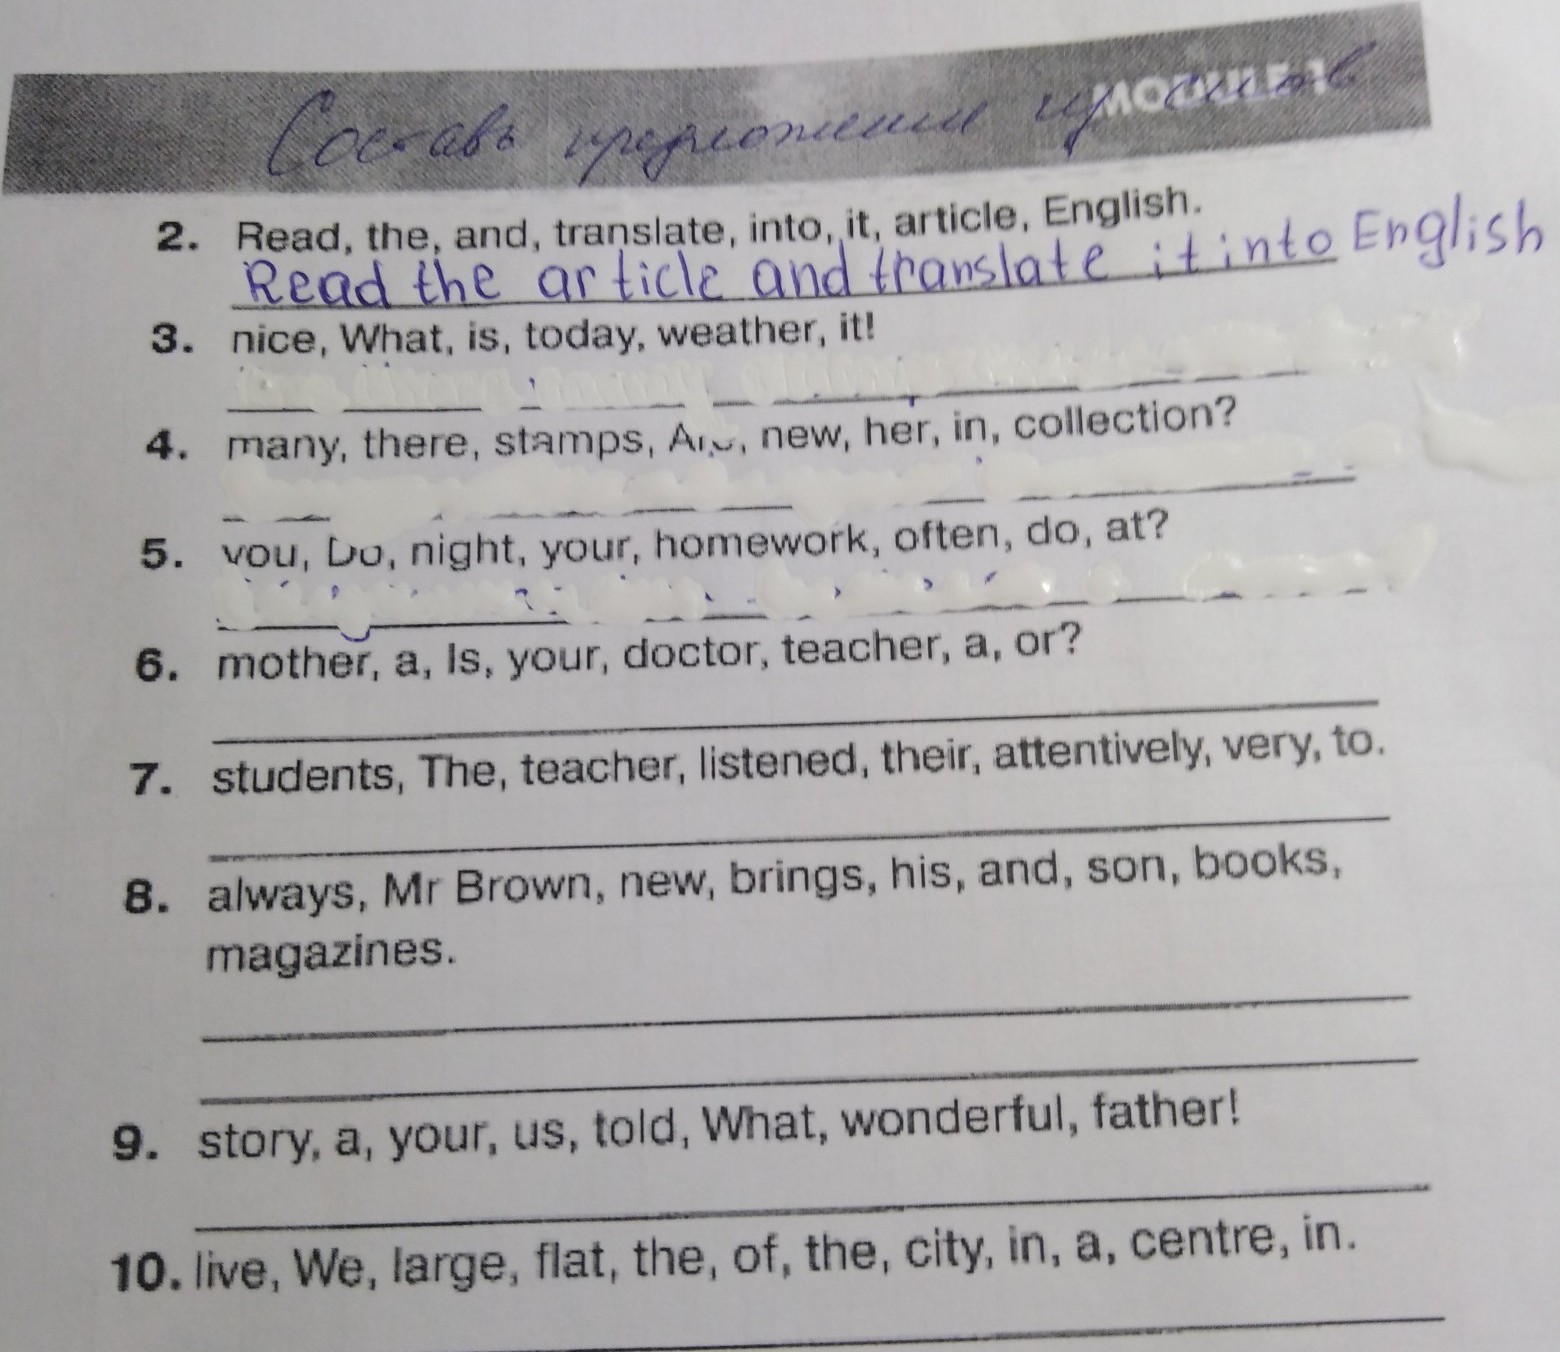 MODULE 1
Составь предложении из слов
2. Read, the, and, translate, into, it, article, English.
Read the article and translate it into English
3. nice, What, is, today, weather, it!
4. many, there, stamps, Are, new, her, in, collection?
5. you, Do, night, your, homework, often, do, at?
6. mother, a, Is, your, doctor, teacher, a, or?
7. students, The, teacher, listened, their, attentively, very, to.
8. always, Mr Brown, new, brings, his, and, son, books,
magazines.
9. story, a, your, us, told, What, wonderful, father!
10. live, We, large, flat, the, of, the, city, in, a, centre, in.